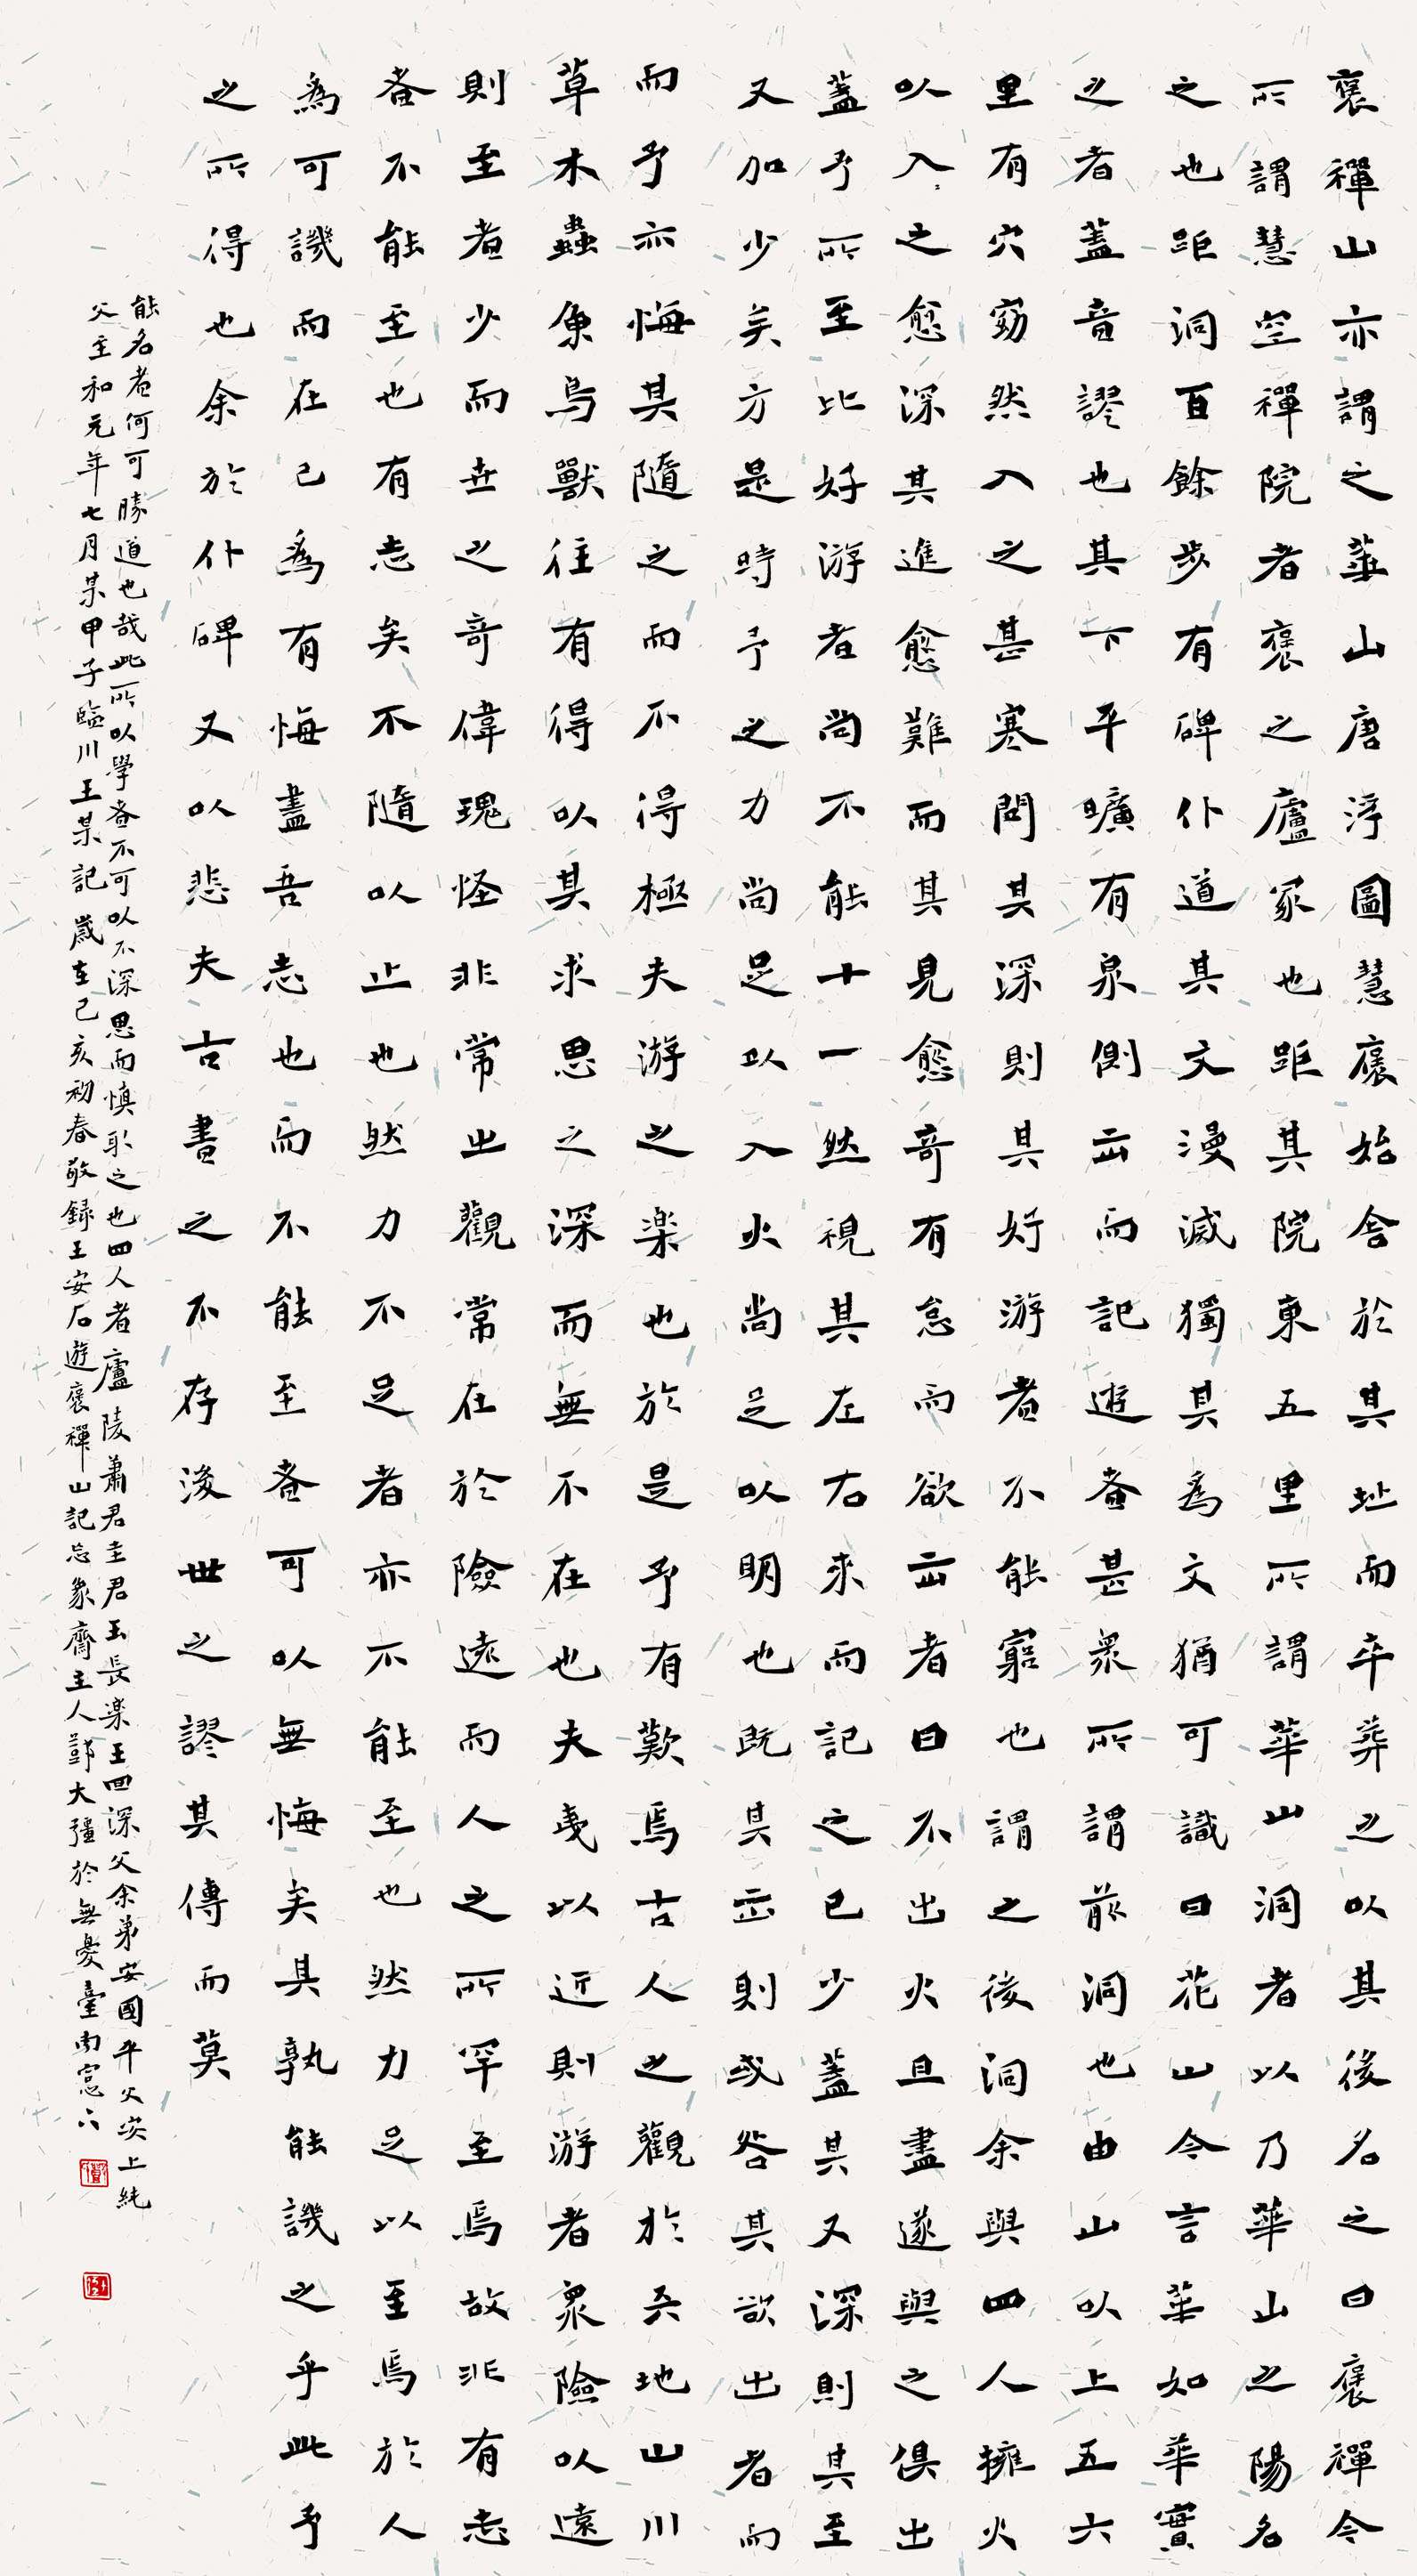 褒禪山亦謂之華山唐浮圖慧褒始舍於其址而卒葬之以其後名之曰褒禪今
所謂慧空禪院者褒之廬冢也距其院東五里所謂華山洞者以乃華山之陽名
之也距洞百餘步有碑仆道其文漫滅獨其為文猶可識曰花山今言華如華實
之者蓋音謬也其下平曠有泉側出而記遊者甚眾所謂前洞也由山以上五六
里有穴窈然入之甚寒問其深則其好游者不能窮也謂之後洞余與四人擁火
以入〻之愈深其進愈難而其見愈奇有怠而欲出者曰不出火且盡遂與之俱出
蓋予所至比好游者尚不能十一然視其左右來而記之已少蓋其又深則其至
又加少矣方是時予之力尚足以入火尚足以明也既其出則或咎其欲出者而
而予亦悔其隨之而不得極夫游之楽也於是予有歎焉古人之觀於天地山川
草木蟲魚鳥獸往有得以其求思之深而無不在也夫夷以近則游者眾險以遠
則至者少而世之奇偉瑰怪非常之觀常在於險遠而人之所罕至焉故非有志
者不能至也有志矣不隨以止也然力不足者亦不能至也然力足以至焉於人
為可譏而在己為有悔盡吾志也而不能至者可以無悔矣其孰能譏之乎此予
之所得也余於仆碑又以悲夫古書之不存後世之謬其傳而莫
能名者何可勝道也哉此所以學者不可以不深思而慎取之也四人者廬陵蕭君圭君玉長楽王回深父余弟安國平父安上純
父至和元年七月某甲子臨川王某記 歲在己亥初春敬錄王安石遊褒禪山記忘象齋主人鄧大彊於無憂臺南窗下